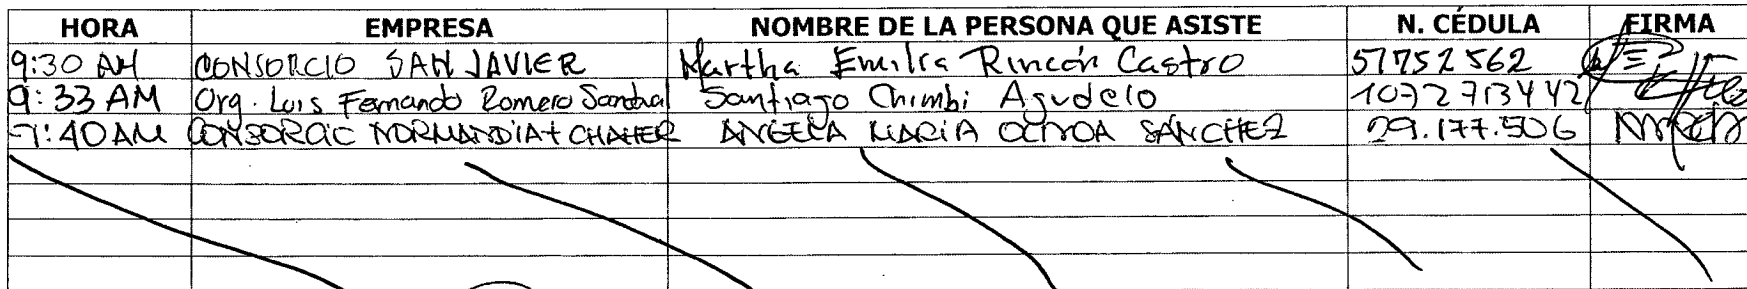 HORA EMPRESA NOMBRE DE LA PERSONA QUE ASISTE N. CÉDULA FIRMA
9:30 AM CONSORCIO SAN JAVIER Martha Emilia Rincón Castro 51752562
9:33 AM Org. Luis Fernando Romero Sandoval Santiago Chimbi Agudelo 1072713442
9:40 AM CONSORCIO NORMANDIA + CHAHER ANGELA MARIA OCHOA SÁNCHEZ 29.177.506